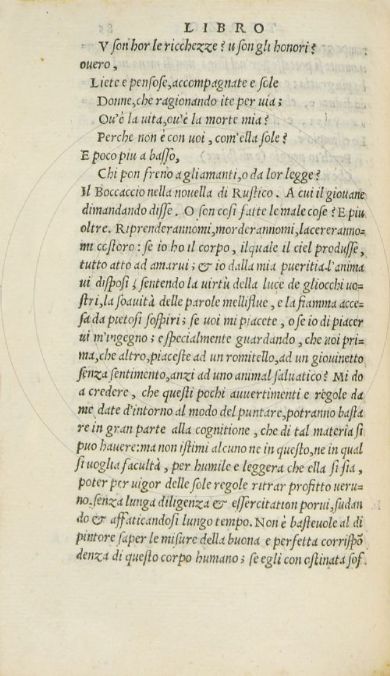 LIBRO
V son hor le ricchezze? u son gli honori?
overo,
Liete e pensose, accompagnate e sole
Donne, che ragionando ite per uia;
Ou'è la uita, ou'è la morte mia?
Perche non è con uoi, com'ella sole?
E poco piu a basso,
Chi pon freno a gli amanti, o da lor legge?
Il Boccaccio nella nouella di Rustico. A cui il giouane
dimandando disse. O son cosi fatte le male cose? E piu
oltre. Riprenderannomi, morderannomi, lacereranno-
mi costoro: se io ho il corpo, ilquale il ciel produsse,
tutto atto ad amarui; & io dalla mia pueritia l'anima
ui disposi; sentendo la uirtù della luce de gliocchi uo-
stri, la soauità delle parole melliflue, e la fiamma acce-
sa da pietosi sospiri; se uoi mi piacete, o se io di piacer
ui m'ingegno; e specialmente guardando, che uoi pri-
ma, che altro, piaceste ad un romitello, ad un giouinetto
senza sentimento, anzi ad uno animal saluatico? Mi do
a credere, che questi pochi auuertimenti e regole da
me date d'intorno al modo del puntare, potranno basta
re in gran parte alla cognitione, che di tal materia si
puo hauere: ma non istimi alcuno ne in questo, ne in qual
si uoglia facultà, per humile e leggera che ella si sia,
poter per uigor delle sole regole ritrar profitto ueru-
no, senza lunga diligenza & essercitation porui, sudan
do & affaticandosi lungo tempo. Non è basteuole al di
pintore saper le misure della buona e perfetta corrispõ
denza di questo corpo humano; se egli con ostinata sof-